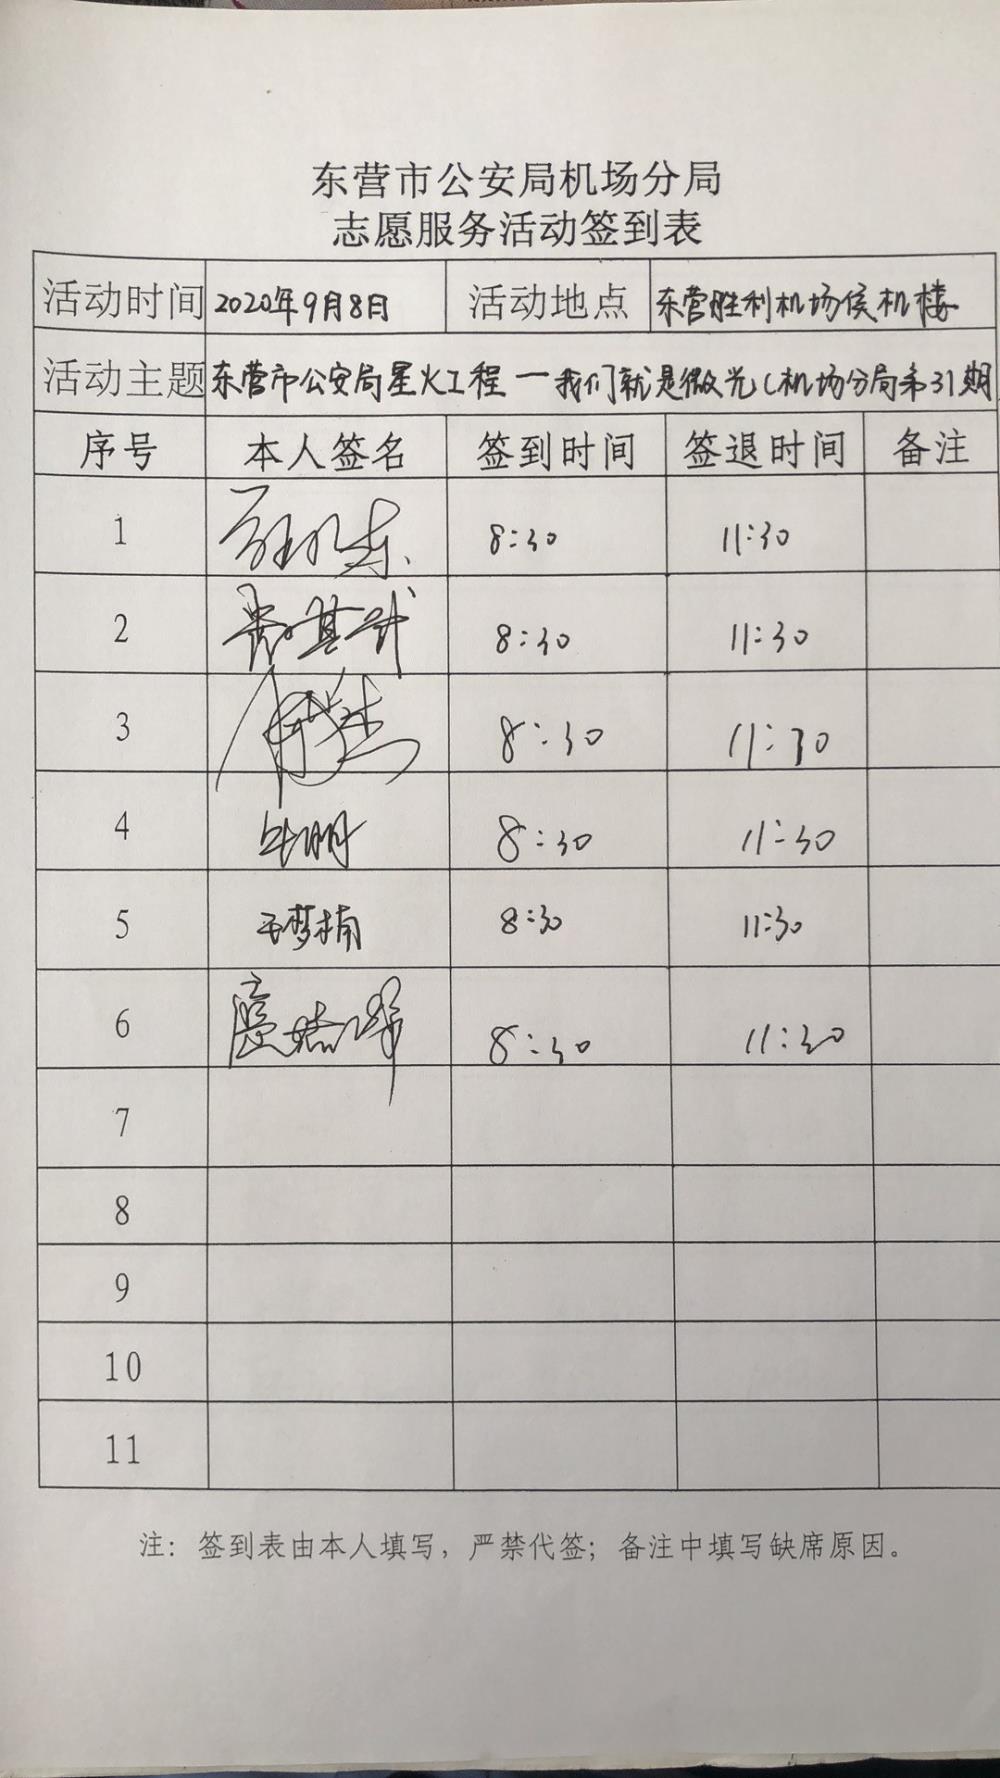 东营市公安局机场分局
志愿服务活动签到表
活动时间 2020年9月8日 活动地点 东营胜利机场侯机楼
活动主题 东营市公安局星火工程—我们就是微光(机场分局第31期
序号 本人签名 签到时间 签退时间 备注
1 8:30 11:30
2 8:30 11:30
3 8:30 11:30
4 牛明明 8:30 11:30
5 王梦楠 8:30 11:30
6 8:30 11:30
7
8
9
10
11
注：签到表由本人填写，严禁代签；备注中填写缺席原因。